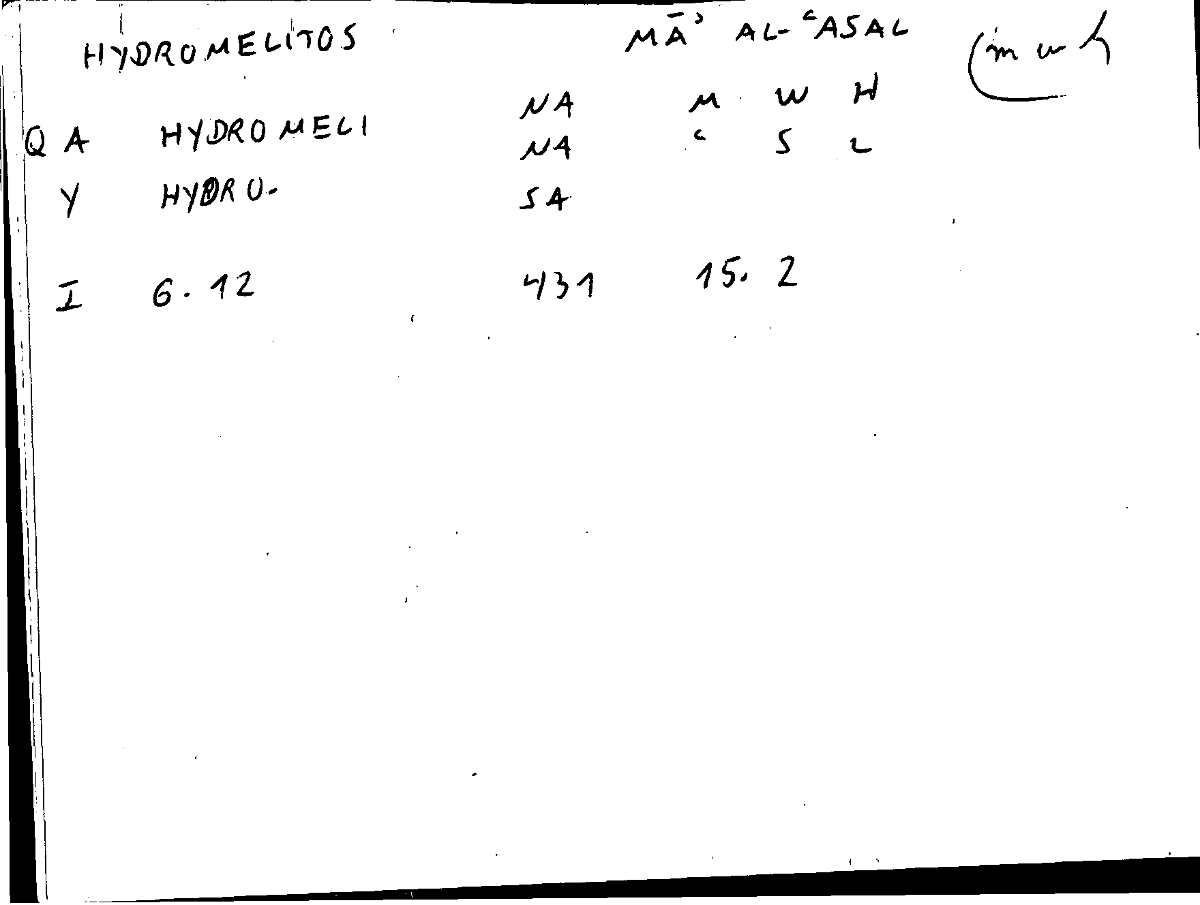 HYDROMELITOS MĀʾ AL-ʿASAL (mwh
Q A HYDROMELI NA M W H
NA ʿ S L
Y HYDRO- SA
I 6.12 431 15.2